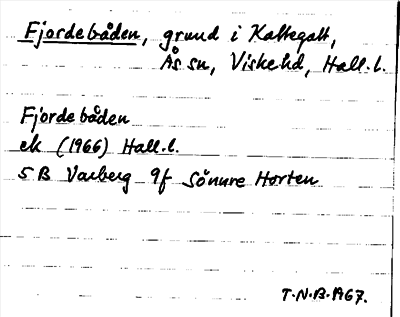 Fjordebåden, grund i Kattegatt,
Ås sn, Viske hd, Hall. l.
Fjordebåden
ek (1966) Hall. l.
5B Varberg 9f Sönnre Horten
T.N.B. 1967.